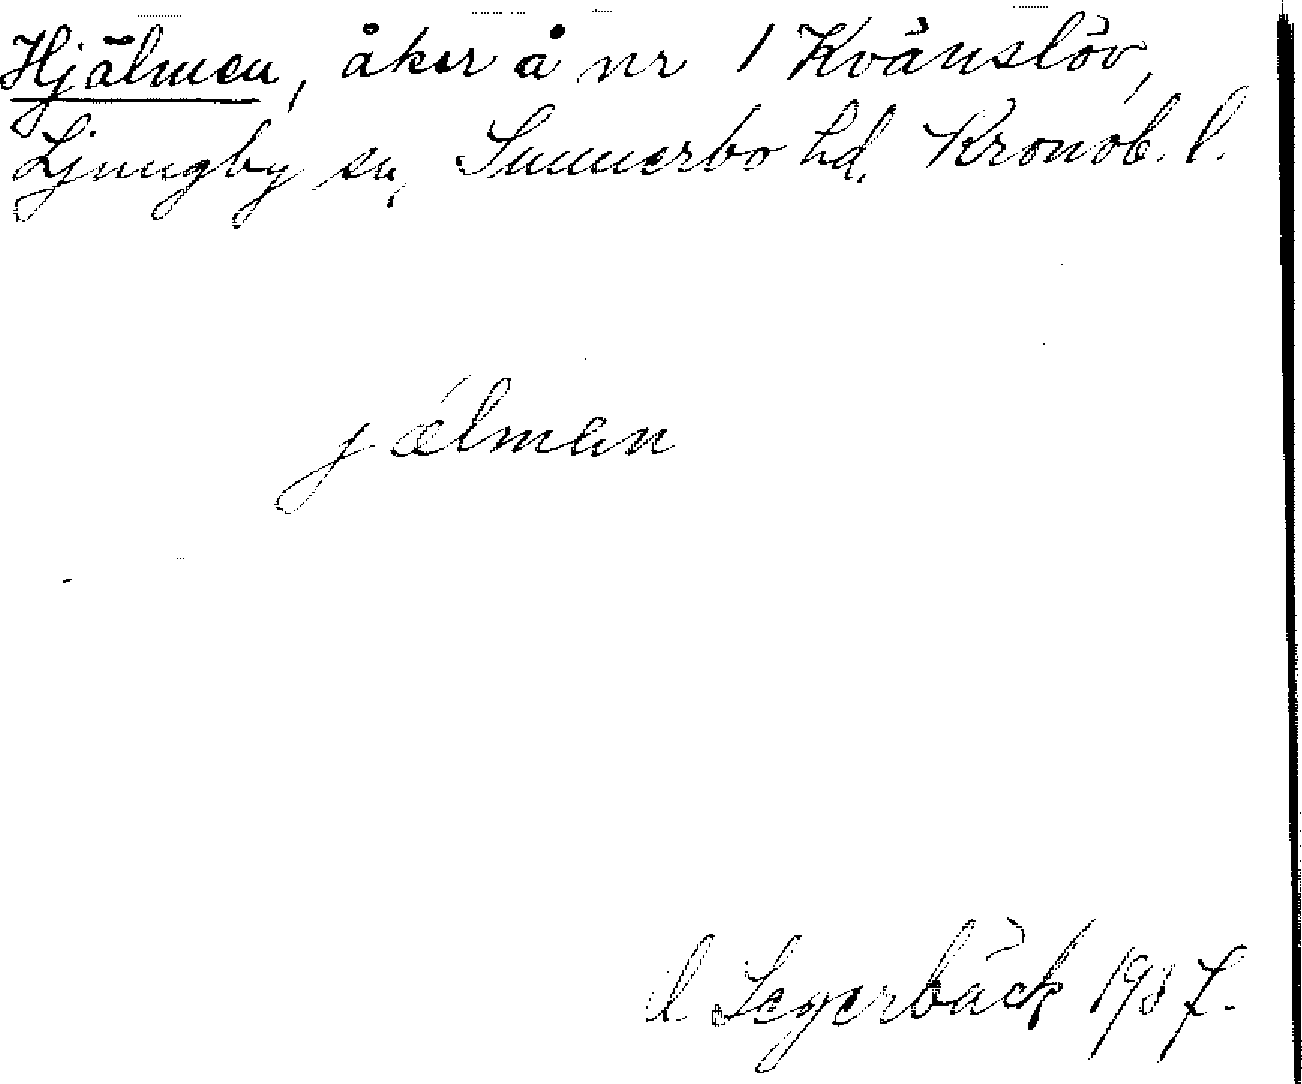 Hjälmen, åker å nr 1 Kvänslöv,
Ljungby sn, Sunnerbo hd. Kronob. l.
jǽlmen
Segerbäck 1937.